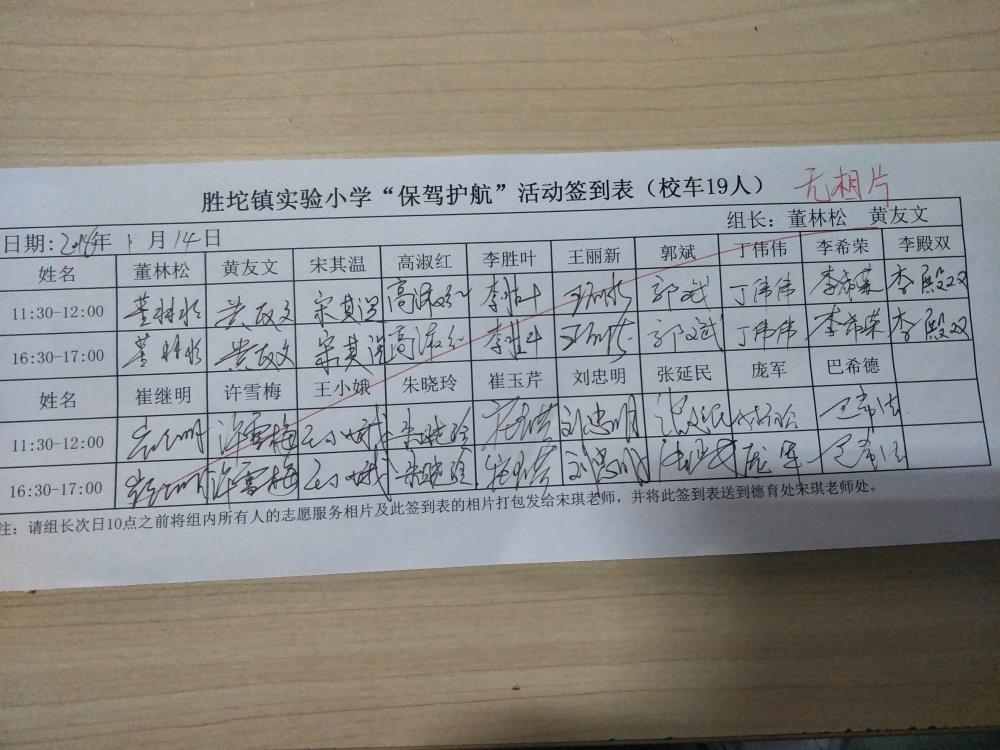 胜坨镇实验小学“保驾护航”活动签到表（校车19人） 无相片
组长：董林松 黄友文
日期：2016年 1 月 14 日
姓名 董林松 黄友文 宋其温 高淑红 李胜叶 王丽新 郭斌 丁伟伟 李希荣 李殿双
11:30-12:00 董林松 黄友文 宋其温 高淑红 李胜叶 王丽新 郭斌 丁伟伟 李希荣 李殿双
16:30-17:00 董林松 黄友文 宋其温 高淑红 李胜叶 王丽新 郭斌 丁伟伟 李希荣 李殿双
姓名 崔继明 许雪梅 王小娥 朱晓玲 崔玉芹 刘忠明 张延民 庞军 巴希德
11:30-12:00 崔继明 许雪梅 王小娥 朱晓玲 崔玉芹 刘忠明 张延民 巴希德
16:30-17:00 崔继明 许雪梅 王小娥 朱晓玲 崔玉芹 刘忠明 张延民 庞军 巴希德
注：请组长次日10点之前将组内所有人的志愿服务相片及此签到表的相片打包发给宋琪老师，并将此签到表送到德育处宋琪老师处。